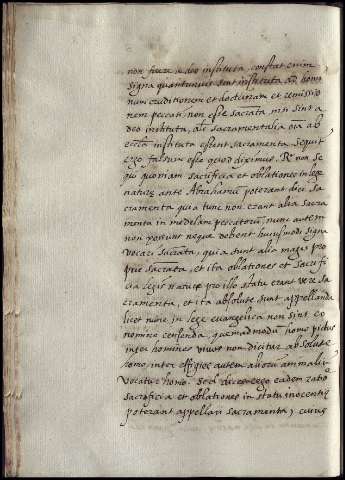 non fuere a deo instituta, constat enim,
signa quantumvis sint instituta ad homi
num eruditionem et doctrinam et remissio
nem peccati non esse sacrāta, nisi sint a
deo instituta, alr̄ sacramentalia oīa ab
ecclīa instituta essent sacramenta. sequit
ergo falsum esse quod diximus. Rº non se
qui quoniam sacrificia et oblationes in lege
naturę ante Abrahamū poterant dici sa
cramenta quia tunc non erant alia sacra
menta in medelam peccatorū, nunc autem
non possunt neque debent huiusmodi signa
vocari sacrāta, quia sunt alia magis pro
prie sacrāta, et ita oblationes et sacrifi
cia legis naturę pro illo statu erant vere sa
cramenta, et ita absolute sunt appellanda
licet nunc in lege evangelica non sint eo
nomine censenda, quemadmodū homo pictus
inter homines vivos non dicitur absolute
homo, inter effigies autem aliorū animaliū
vocatur homo. Sed dices ergo eadem ratioē
sacrificia et oblationes in statu innocentię
poterant appellari sacramenta, cuius